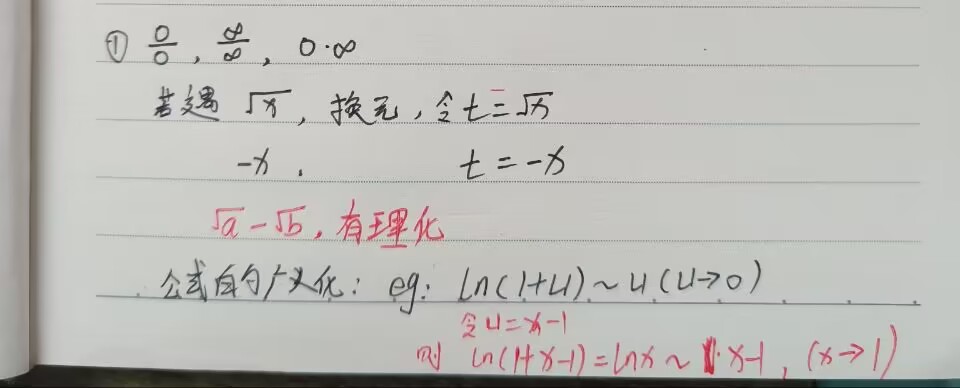 ① 0/0, ∞/∞, 0·∞
若遇 √x, 换元, 令 t=√x
-x. t=-x
√a-√b, 有理化
公式的广义化: eg: ln(1+u)~u(u→0)
令u=x-1
则 ln(1+x-1)=lnx~x-1, (x→1)